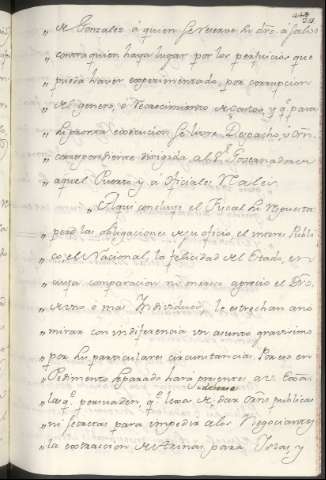 " de Gonzalez ó quien se reserve su dro. a salvo
" contra quien haya lugar por los perjuicios que
" pueda haver experimentado, por corrupcion
" del genero, ó
" su pronta execucion se libre Despacho, u Orn.
" correspondiente dirigida al Sr. Governador de
" aquel Puerto y á Oficiales Rales.
" Aqui concluye el Fiscal su respuesta
" pero las obligaciones de su oficio, el interes Publi
" co, el Nacional, la felicidad del Estado, en
" cuya comparacion ni merece aprecio el Dro.
" de uno ó mas Individuos, le estrechan a no
" mirar con indiferencia un asunto gravisimo
" por sus particulares circunstancias. Por eso en
" Pedimento separado hará presentes a V. Exa.
" las qe. persuaden, qe. lexos de dar Orns. publicas
" ni secretas para impedir a los Negociantes
" la extraccion de Arinas para